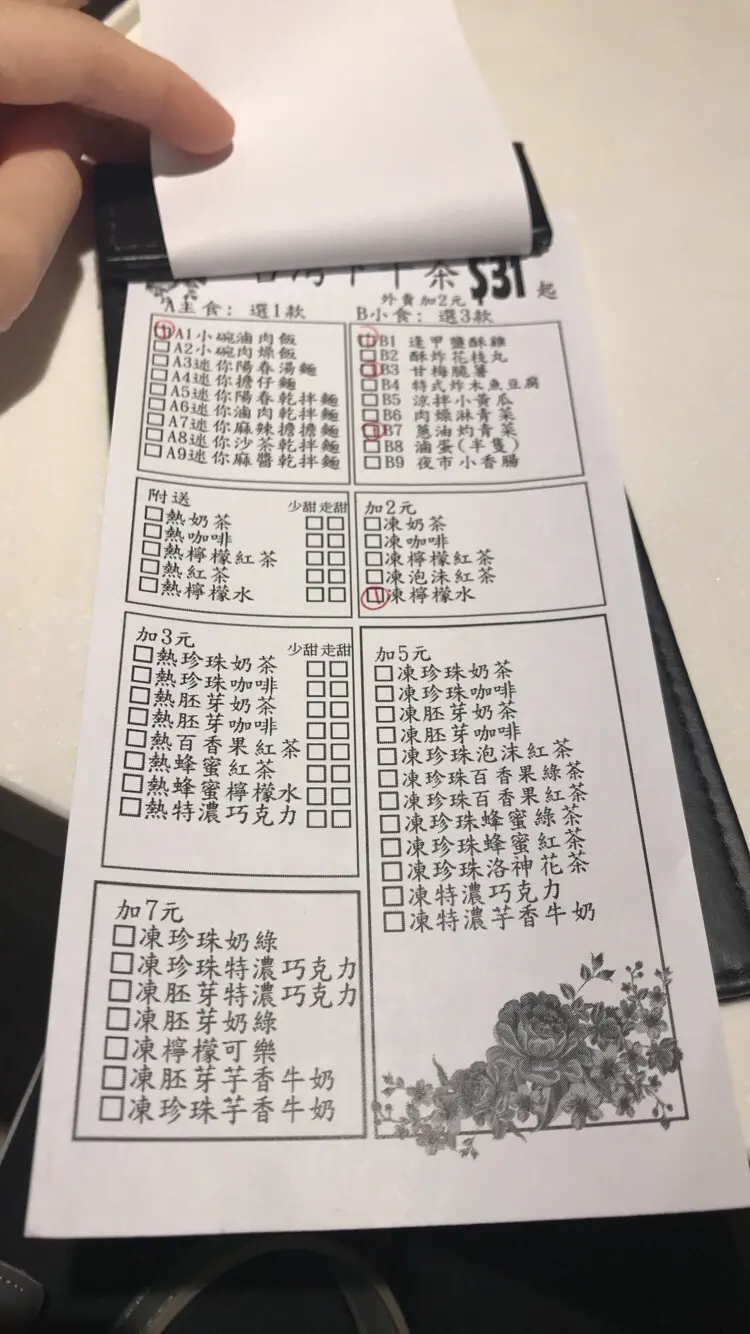 台灣下午茶 $31 起
外賣加2元
A主食: 選1款
A1小碗滷肉飯
A2小碗肉燥飯
A3迷你陽春湯麵
A4迷你擔仔麵
A5迷你陽春乾拌麵
A6迷你滷肉乾拌麵
A7迷你麻辣擔擔麵
A8迷你沙茶乾拌麵
A9迷你麻醬乾拌麵
B小食: 選3款
B1 逢甲鹽酥雞
B2 酥炸花枝丸
B3 甘梅脆薯
B4 特式炸木魚豆腐
B5 涼拌小黃瓜
B6 肉燥淋青菜
B7 蔥油灼青菜
B8 滷蛋(半隻)
B9 夜市小香腸
附送 少甜 走甜
熱奶茶
熱咖啡
熱檸檬紅茶
熱紅茶
熱檸檬水
加2元
凍奶茶
凍咖啡
凍檸檬紅茶
凍泡沫紅茶
凍檸檬水
加3元 少甜 走甜
熱珍珠奶茶
熱珍珠咖啡
熱胚芽奶茶
熱胚芽咖啡
熱百香果紅茶
熱蜂蜜紅茶
熱蜂蜜檸檬水
熱特濃巧克力
加5元
凍珍珠奶茶
凍珍珠咖啡
凍胚芽奶茶
凍胚芽咖啡
凍珍珠泡沫紅茶
凍珍珠百香果綠茶
凍珍珠百香果紅茶
凍珍珠蜂蜜綠茶
凍珍珠蜂蜜紅茶
凍珍珠洛神花茶
凍特濃巧克力
凍特濃芋香牛奶
加7元
凍珍珠奶綠
凍珍珠特濃巧克力
凍胚芽特濃巧克力
凍胚芽奶綠
凍檸檬可樂
凍胚芽芋香牛奶
凍珍珠芋香牛奶